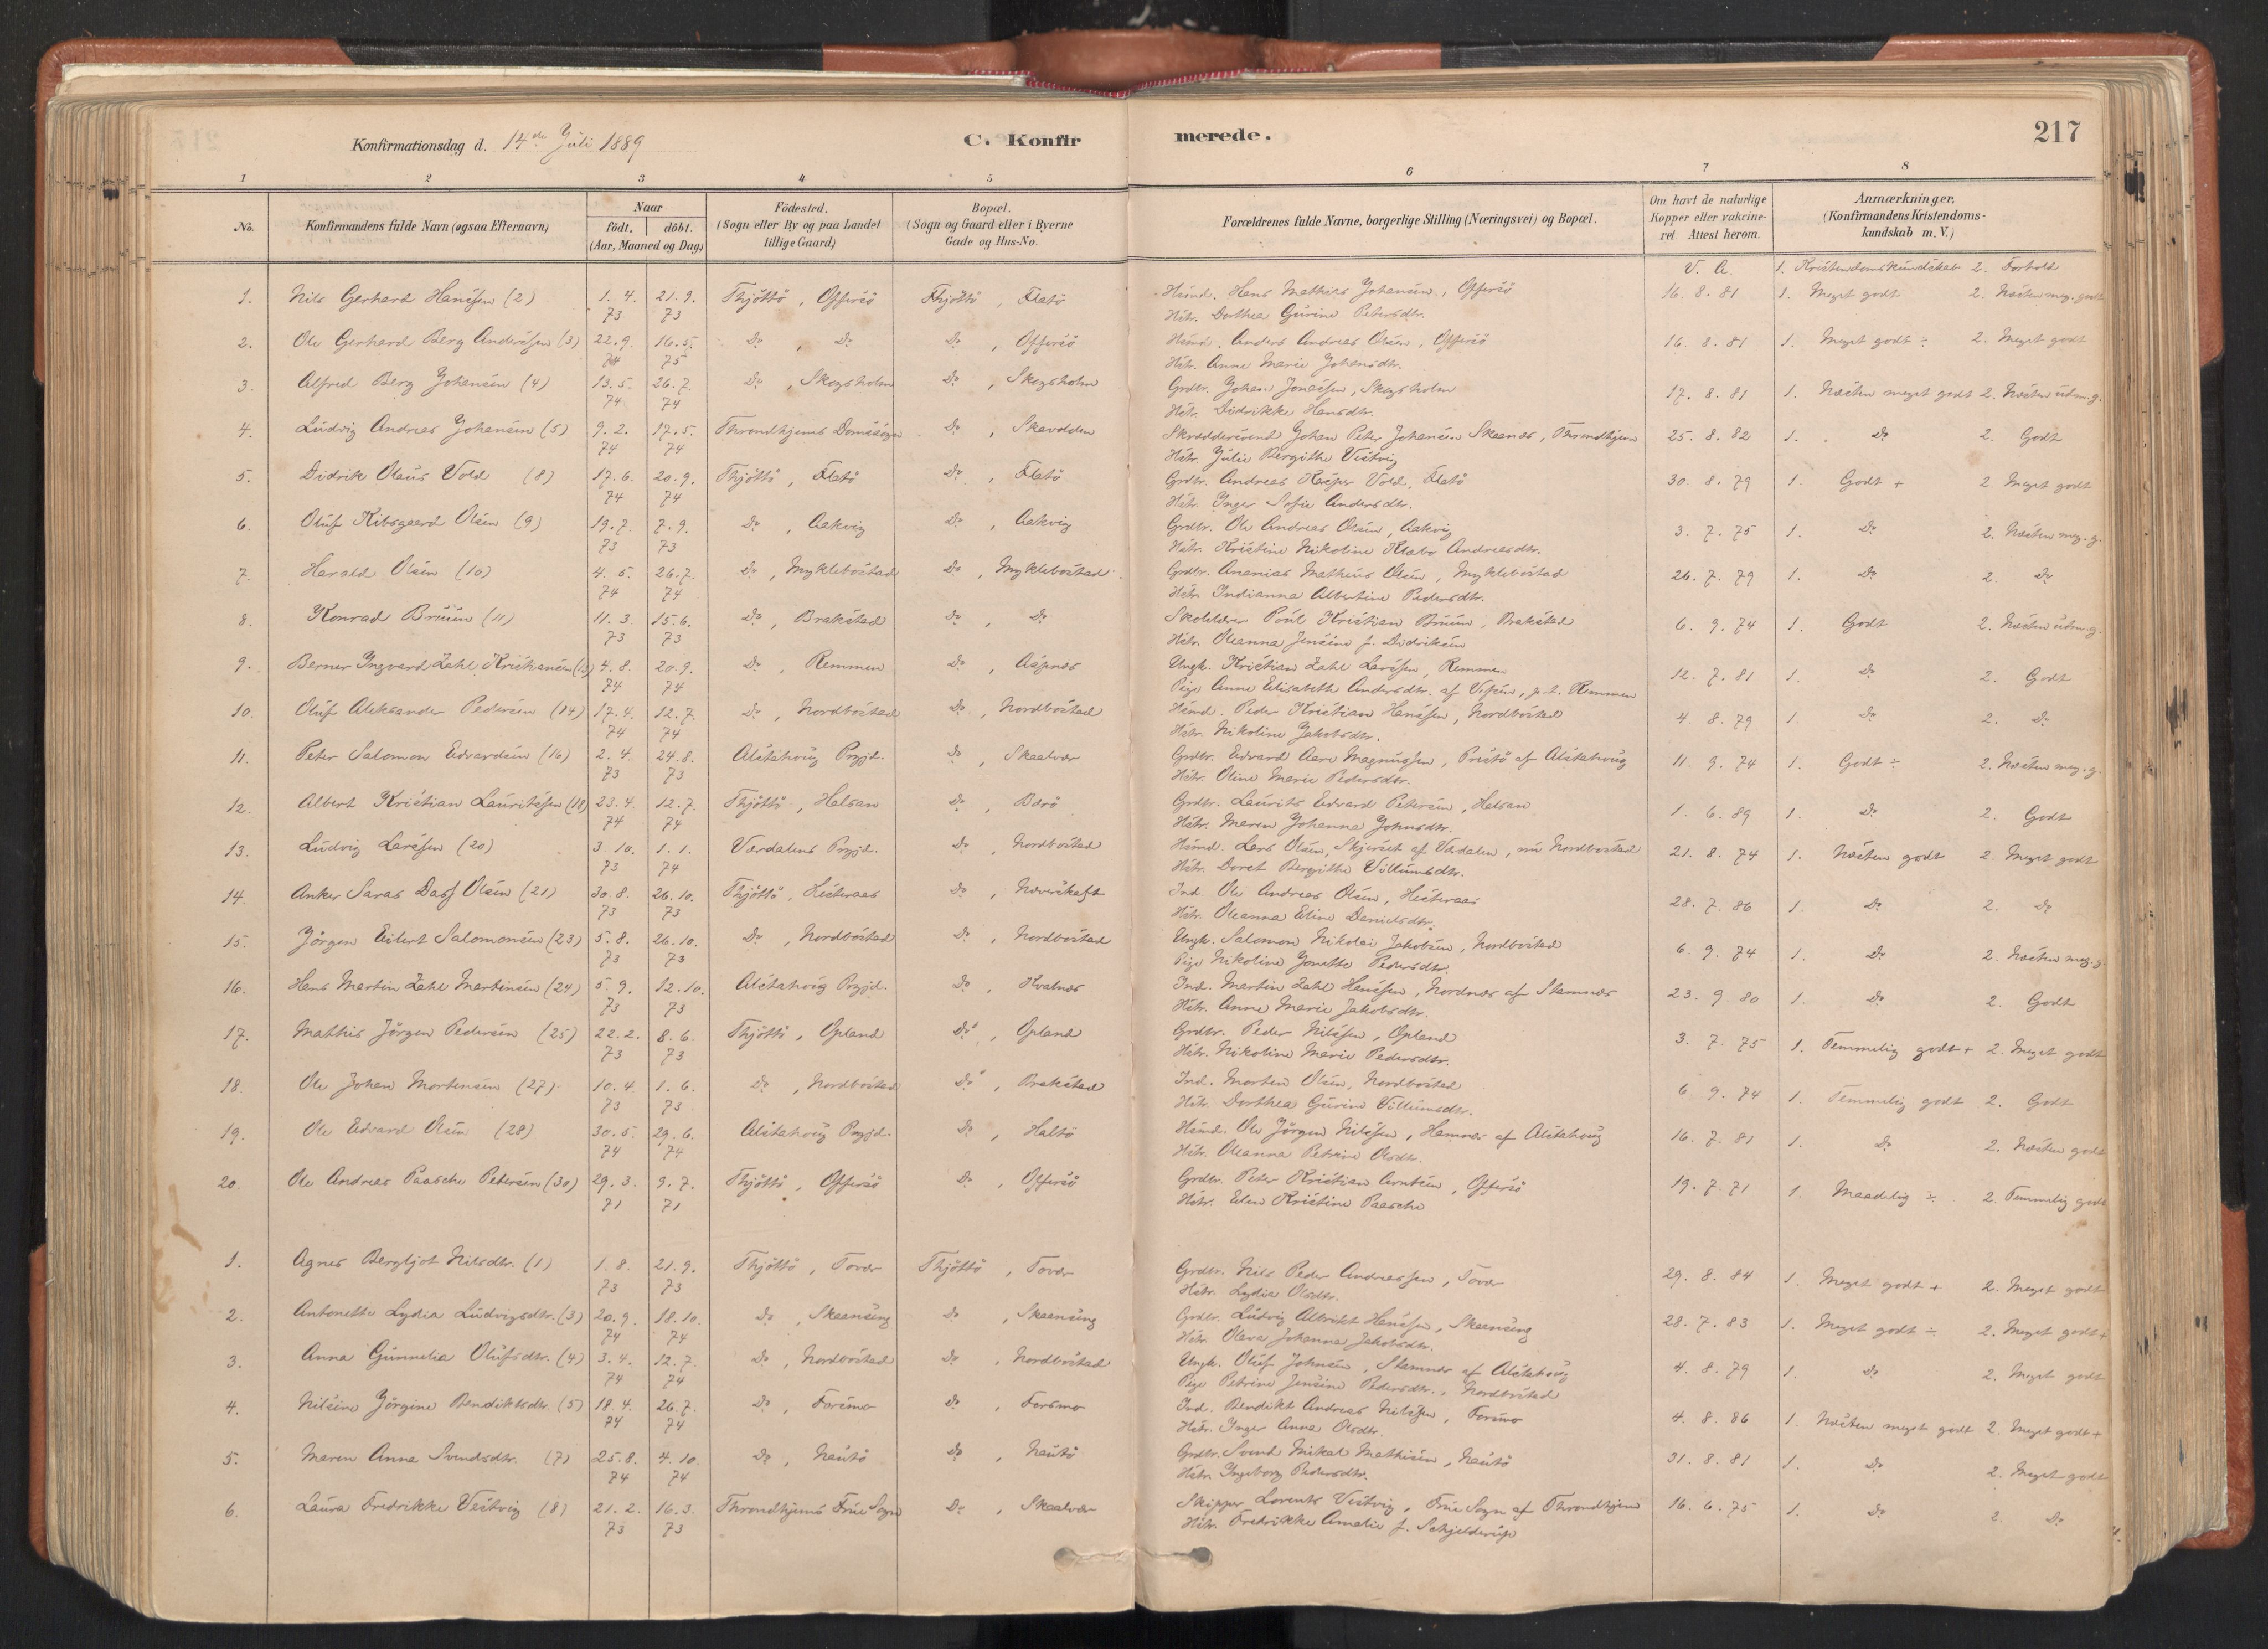 Konfirmationsdag d. 14de Juli 1889 C. Konfirmerede. 217
1 2 3 4 5 6 7 8
No. Konfirmandens fulde Navn (ogsaa Efternavn) Naar født. døbt. (Aar, Maaned og Dag) Fødested. (Sogn eller By og paa Landet tillige Gaard) Bopæl. (Sogn og Gaard eller i Byerne Gade og Hus-No. Forældrenes fulde Navne, borgerlige Stilling (Næringsvei) og Bopæl. Om havt de naturlige Kopper eller vakcineret. Attest herom. Anmærkninger. (Konfirmandens Kristendomskundskab m. V.)
V. A. 1. Kristendomskundskab 2. Forhold
1. Nils Gerhard Hanssen (2) 1.4. 73 21.9. 73 Thjöttö, Offersö Thjöttö, Flatö Husmd. Hans Mathias Johansen, Offersö 16.8.81 1. Meget godt 2. Næsten meg. godt
Hstr. Dorthea Gurine Petersdtr.
2. Ole Gerhard Berg Anderssen (3) 22.9. 74 16.5. 75 Do, Do Do, Offersö Husmd. Anders Andreas Olsen, Offersö 16.8.81 1. Meget godt ÷ 2. Meget godt
Hstr. Anne Marie Johansdtr.
3. Alfred Berg Johansen (4) 13.5. 74 26.7. 74 Do, Skogsholm Do, Skogsholm Grdbr. Johan Jonassen, Skogsholm 17.8.81 1. Næsten meget godt 2. Næsten udm. g.
Hstr. Didrikke Hansdtr.
4. Ludvig Andreas Johansen (5) 9.2. 74 17.5. 74 Throndhjems Domsogn Do, Skavolden Skræddersvend Johan Peter Johansen Skaanes, Throndhjem 25.8.82 1. Do 2. Godt
Hstr. Julie Bergithe Vestvig
5. Didrik Olaus Vold (8) 17.6. 74 20.9. 74 Thjöttö, Flatö Do, Flatö Grdbr. Andreas Kasper Vold, Flatö 30.8.79 1. Godt + 2. Meget godt
Hstr. Inger Sofie Andersdtr.
6. Oluf Kibsgaard Olsen (9) 19.7. 73 7.9. 73 Do, Aakvig Do, Aakvig Grdbr. Ole Andreas Olsen, Aakvig 3.7.75 1. Do 2. Næsten meg. g.
Hstr. Kristine Nikoline Klabo Andreasdtr.
7. Harald Olsen (10) 4.5. 74 26.7. 74 Do, Myklebostad Do, Myklebostad Grdbr. Ananias Matheus Olsen, Myklebostad 26.7.79 1. Do 2. Do
Hstr. Indianna Albertine Pedersdtr.
8. Konrad Bruun (11) 11.3. 73 15.6. 73 Do, Brakstad Do, Do Skolelærer Poul Kristian Bruun, Brakstad 6.9.74 1. Godt 2. Næsten udm. g.
Hstr. Oleanna Jensine f. Didriksen
9. Berner Ingvard Zahl Kristiansen (13) 4.8. 74 20.9. 74 Do, Remmen Do, Aspnes Ungk. Kristian Zahl Larssen, Remmen 12.7.81 1. Do 2. Godt
Pige Anne Elisabeth Andersdtr. af Vefsen, p. t. Remmen
10. Oluf Aleksander Pedersen (14) 17.4. 74 12.7. 74 Do, Nordbostad Do, Nordbostad Husmd. Peder Kristian Hanssen, Nordbostad 4.8.79 1. Do 2. Do
Hstr. Nikoline Jakobsdtr.
11. Peter Salomon Edvardsen (16) 2.4. 73 24.8. 73 Alstahoug Prgjd. Do, Skaalvær Grdbr. Edvard Aare Magnussen, Prestö af Alstahoug 11.9.74 1. Godt ÷ 2. Næsten meg. g.
Hstr. Oline Marie Pedersdtr.
12. Albert Kristian Lauritssen (18) 23.4. 74 12.7. 74 Thjöttö, Halsan Do, Barö Grdbr. Laurits Edvard Petersen, Halsan 1.6.89 1. Do 2. Godt
Hstr. Maren Johanna Johnsdtr.
13. Ludvig Larssen (20) 3.10. 73 1.1. 74 Værdalens Prgjd. Do, Nordbostad Husmd. Lars Olsen, Skjerset af Værdalen, nu Nordbostad 21.8.74 1. Næsten godt 2. Meget godt
Hstr. Doret Bergithe Villumsdtr.
14. Anker Saras Dass Olsen (21) 30.8. 73 26.10. 73 Thjöttö, Hesteraas Do, Næverskaft Ind. Ole Andreas Olsen, Hesteraas 28.7.86 1. Do 2. Do
Hstr. Oleanna Eline Danielsdtr.
15. Jörgen Eilert Salomonsen (23) 5.8. 73 26.10. 73 Do, Nordbostad Do, Nordbostad Ungk. Salomon Nikolai Jakobsen, Nordbostad 6.9.74 1. Do 2. Næsten meg. g.
Pige Nikoline Jonette Pedersdtr.
16. Hans Martin Zahl Martinsen (24) 5.9. 73 12.10. 73 Alstahoug Prgjd. Do, Kvalnes Ind. Martin Zahl Hanssen, Nordnes af Stamnes 23.9.80 1. Do 2. Godt
Hstr. Anne Marie Jakobsdtr.
17. Mathis Jörgen Pedersen (25) 22.2. 73 8.6. 73 Thjöttö, Opland Do, Opland Grdbr. Peder Nilssen, Opland 3.7.75 1. Temmelig godt + 2. Meget godt
Hstr. Nikoline Marie Pedersdtr.
18. Ole Johan Mortensen (27) 10.4. 73 1.6. 73 Do, Nordbostad Do, Brakstad Ind. Morten Olsen, Nordbostad 6.9.74 1. Temmelig godt 2. Godt
Hstr. Dorthea Gurine Villumsdtr.
19. Ole Edvard Olsen (28) 30.5. 74 29.6. 74 Alstahoug Prgjd. Do, Haltö Husmd. Ole Jörgen Nilssen, Hamnes af Alstahoug 16.7.81 1. Do 2. Næsten godt
Hstr. Oleanna Petrine Olsdtr.
20. Ole Andreas Paasche Petersen (30) 29.3. 71 9.7. 71 Thjöttö, Offersö Do, Offersö Grdbr. Peter Kristian Arntsen, Offersö 19.7.71 1. Maadelig ÷ 2. Temmelig godt
Hstr. Elen Kristine Paasche
1. Agnes Bergljot Nilsdtr. (1) 1.8. 73 21.9. 73 Thjöttö, Tovær Thjöttö, Tovær Grdbr. Nils Peder Andreassen, Tovær 29.8.84 1. Meget godt + 2. Meget godt
Hstr. Lydia Olsdtr.
2. Antonette Lydia Ludvigsdtr. (3) 20.9. 74 18.10. 74 Do, Skaanseng Do, Skaanseng Grdbr. Ludvig Albrikt Hanssen, Skaanseng 28.7.83 1. Meget godt ÷ 2. Meget godt +
Hstr. Olava Johanna Jakobsdtr.
3. Anna Gunnelia Olufsdtr. (4) 3.4. 74 12.7. 74 Do, Nordbostad Do, Nordbostad Ungk. Oluf Johnsen, Stamnes af Alstahoug 4.8.79 1. Do 2. Meget godt
Pige Petrine Jensine Pedersdtr., Nordbostad
4. Nilsine Jörgine Bendiktsdtr. (5) 18.4. 74 26.7. 74 Do, Forsmo Do, Forsmo Ind. Bendikt Andreas Nilssen, Forsmo 4.8.86 1. Næsten meget godt 2. Meget godt +
Hstr. Inger Anna Olsdtr.
5. Maren Anna Svendsdtr. (7) 25.8. 74 4.10. 74 Do, Nautö Do, Nautö Grdbr. Svend Mikal Mathisen, Nautö 31.8.81 1. Do 2. Meget godt
Hstr. Ingeborg Pedersdtr.
6. Laura Fredrikke Vestvig (8) 21.2. 73 16.3. 73 Throndhjems Frue Sogn Do, Skaalvær Skipper Lorents Vestvig, Frue Sogn af Throndhjem 16.6.75 1. Do 2. Do
Hstr. Fredrikke Amalie f. Schjelderup